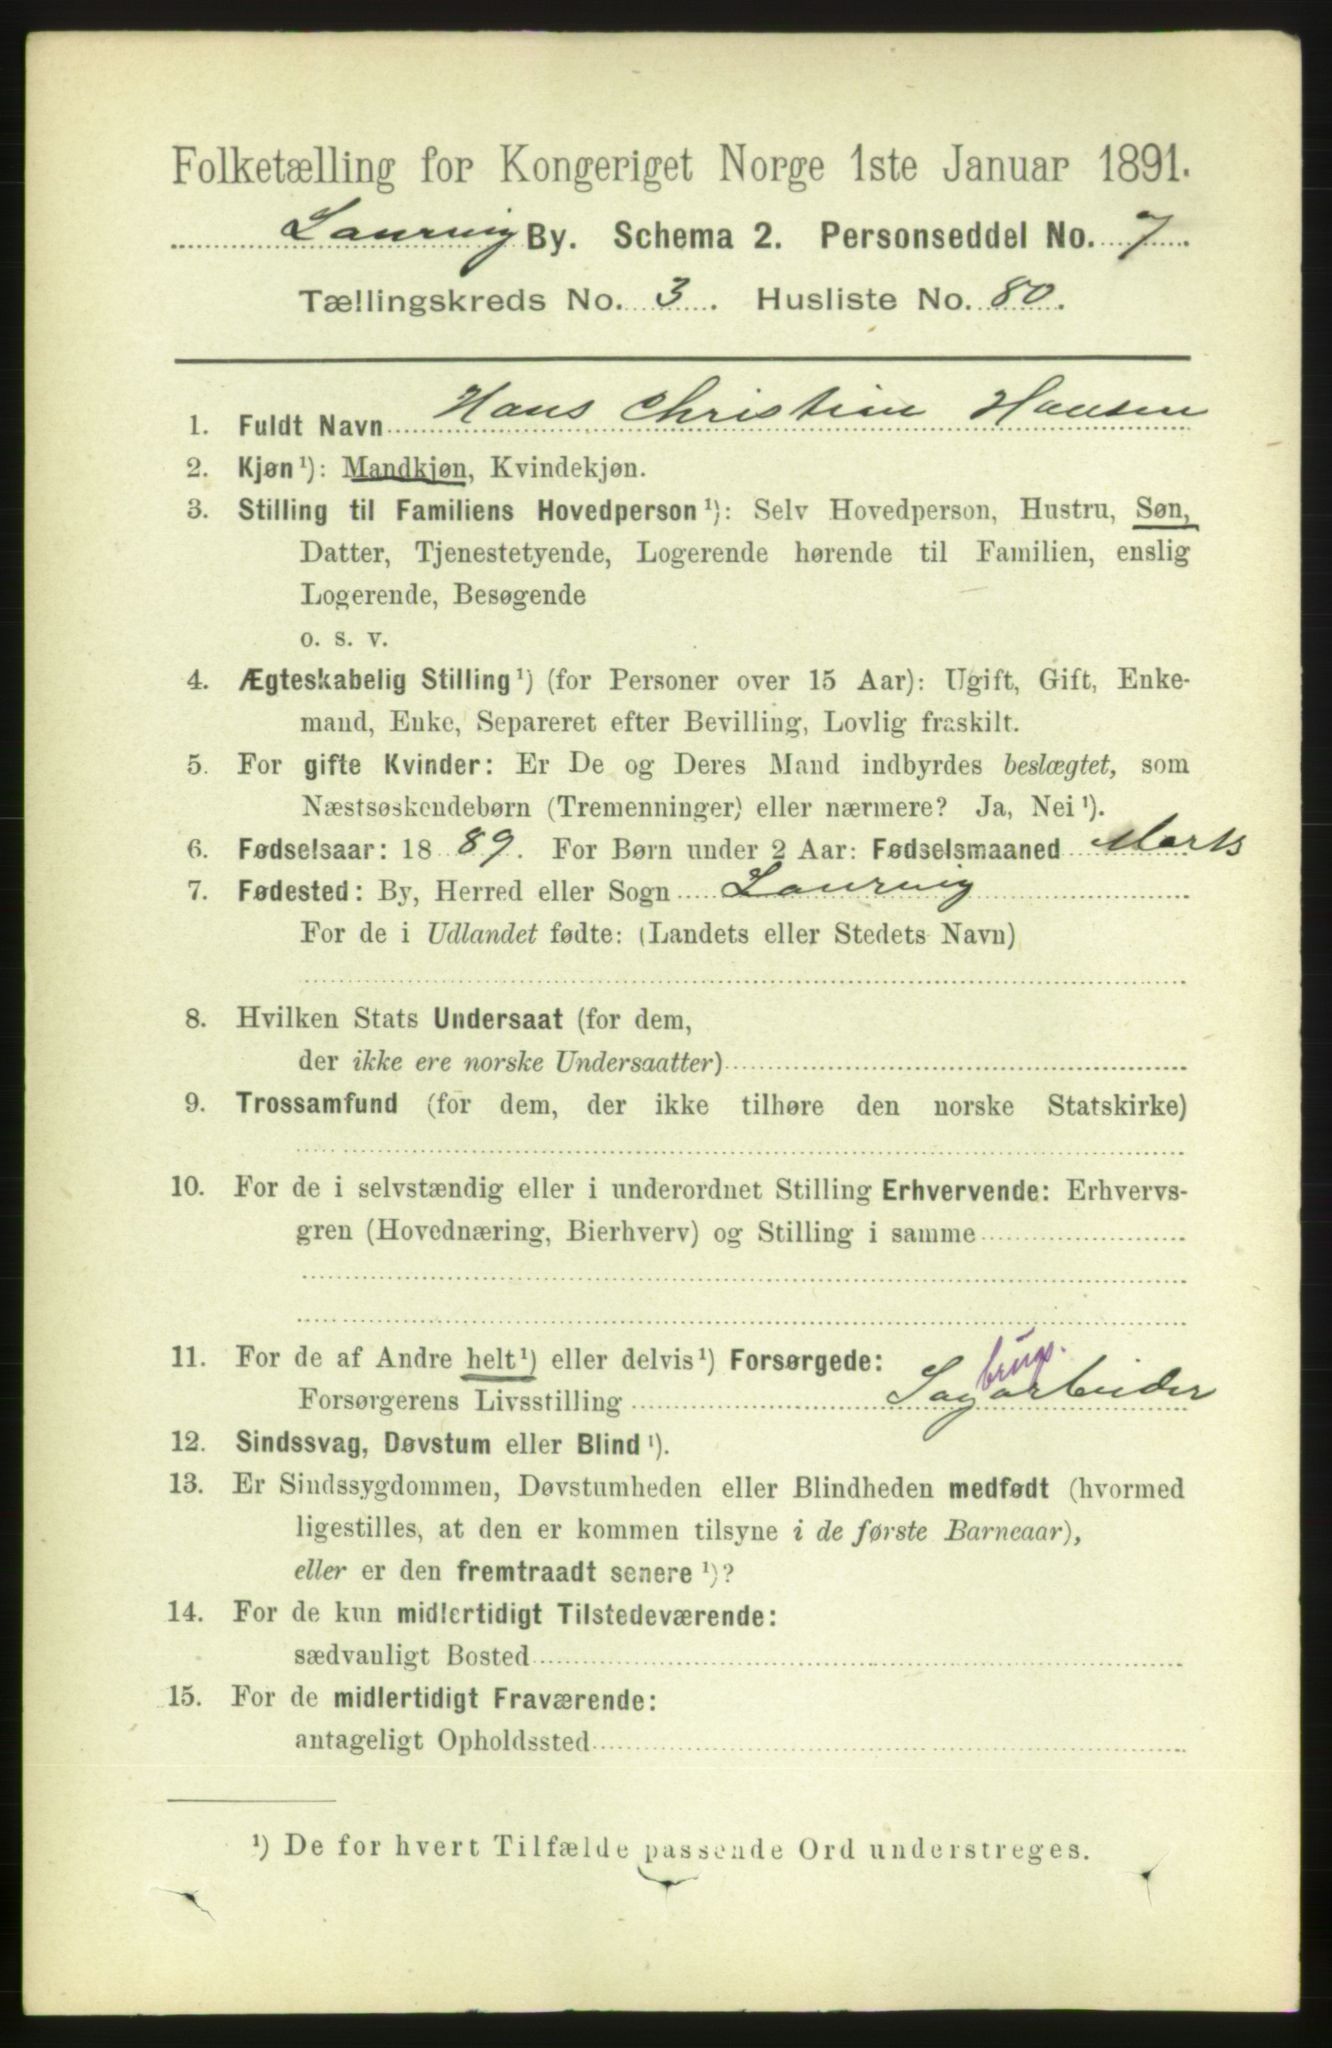 Folketælling for Kongeriget Norge 1ste Januar 1891.
Laurvig By. Schema 2. Personseddel No. 7.
Tællingskreds No. 3. Husliste No. 80.
1. Fuldt Navn Hans Christian Hansen
2. Kjøn¹): Mandkjøn, Kvindekjøn.
3. Stilling til Familiens Hovedperson¹): Selv Hovedperson, Hustru, Søn,
Datter, Tjenestetyende, Logerende hørende til Familien, enslig
Logerende, Besøgende
o. s. v.
4. Ægteskabelig Stilling¹) (for Personer over 15 Aar): Ugift, Gift, Enke-
mand, Enke, Separeret efter Bevilling, Lovlig fraskilt.
5. For gifte Kvinder: Er De og Deres Mand indbyrdes beslægtet, som
Næstsøskendebørn (Tremenninger) eller nærmere? Ja, Nei¹).
6. Fødselsaar: 1889. For Børn under 2 Aar: Fødselsmaaned Marts
7. Fødested: By, Herred eller Sogn Laurvig
For de i Udlandet fødte: (Landets eller Stedets Navn)
8. Hvilken Stats Undersaat (for dem,
der ikke ere norske Undersaatter)
9. Trossamfund (for dem, der ikke tilhøre den norske Statskirke)
10. For de i selvstændig eller i underordnet Stilling Erhvervende: Erhvervs-
gren (Hovednæring, Bierhverv) og Stilling i samme
11. For de af Andre helt¹) eller delvis¹) Forsørgede:
brugs.
Forsørgerens Livsstilling Sagarbeider
12. Sindssvag, Døvstum eller Blind¹).
13. Er Sindssygdommen, Døvstumheden eller Blindheden medfødt (hvormed
ligestilles, at den er kommen tilsyne i de første Barneaar),
eller er den fremtraadt senere¹)?
14. For de kun midlertidigt Tilstedeværende:
sædvanligt Bosted
15. For de midlertidigt Fraværende:
antageligt Opholdssted
¹) De for hvert Tilfælde passende Ord understreges.